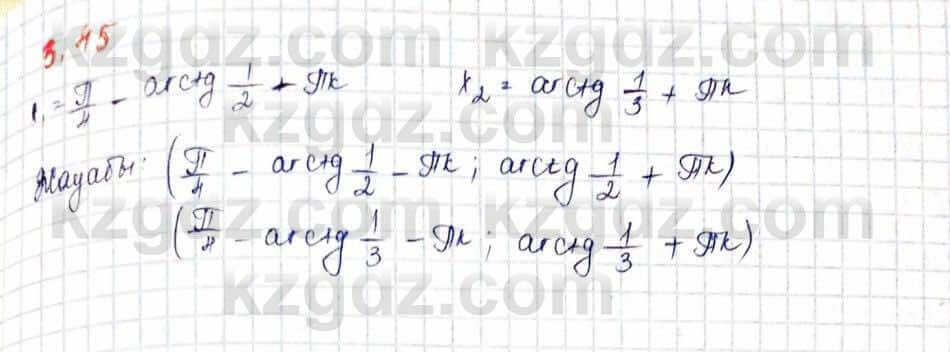 3.45
x₁ = П/4 - arctg 1/2 + Пk x₂ = arctg 1/3 + Пk
Жауабы: (П/4 - arctg 1/2 - Пk ; arctg 1/2 + Пk)
(П/4 - arctg 1/3 - Пk ; arctg 1/3 + Пk)
kzgdz.com kzgdz.com
kzgdz.com
kzgdz.com kzgdz.com
kzgdz.com